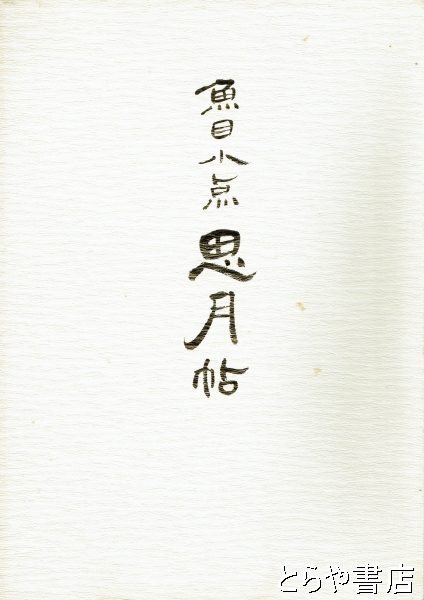 魚目小点 思月帖
とらや書店